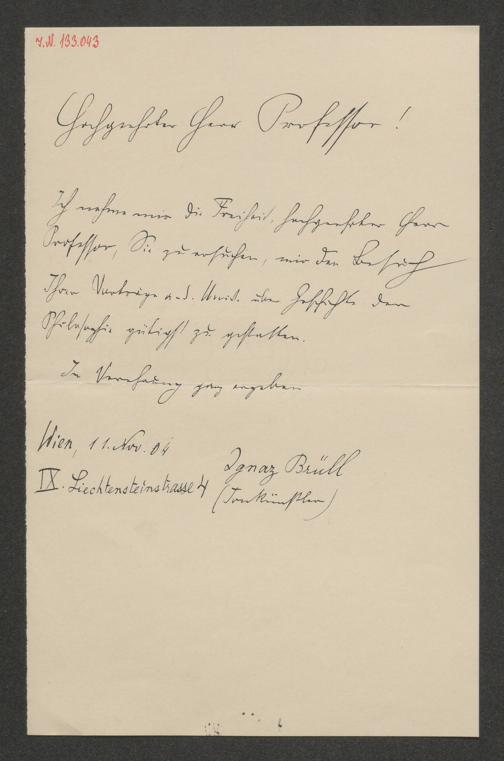 J.N. 133.043
Hochgeehrter Herr Professor!
Ich nehme mir die Freiheit, hochgeehrter Herr
Professor, Sie zu ersuchen, mir den Besuch
Ihrer Vorträge a. d. Univ. über Geschichte der
Philosophie gütigst zu gestatten.
In Verehrung ganz ergeben
Wien, 11. Nov. 04
Ignaz Brüll
IX. Liechtensteinstrasse 4
(Tonkünstler)